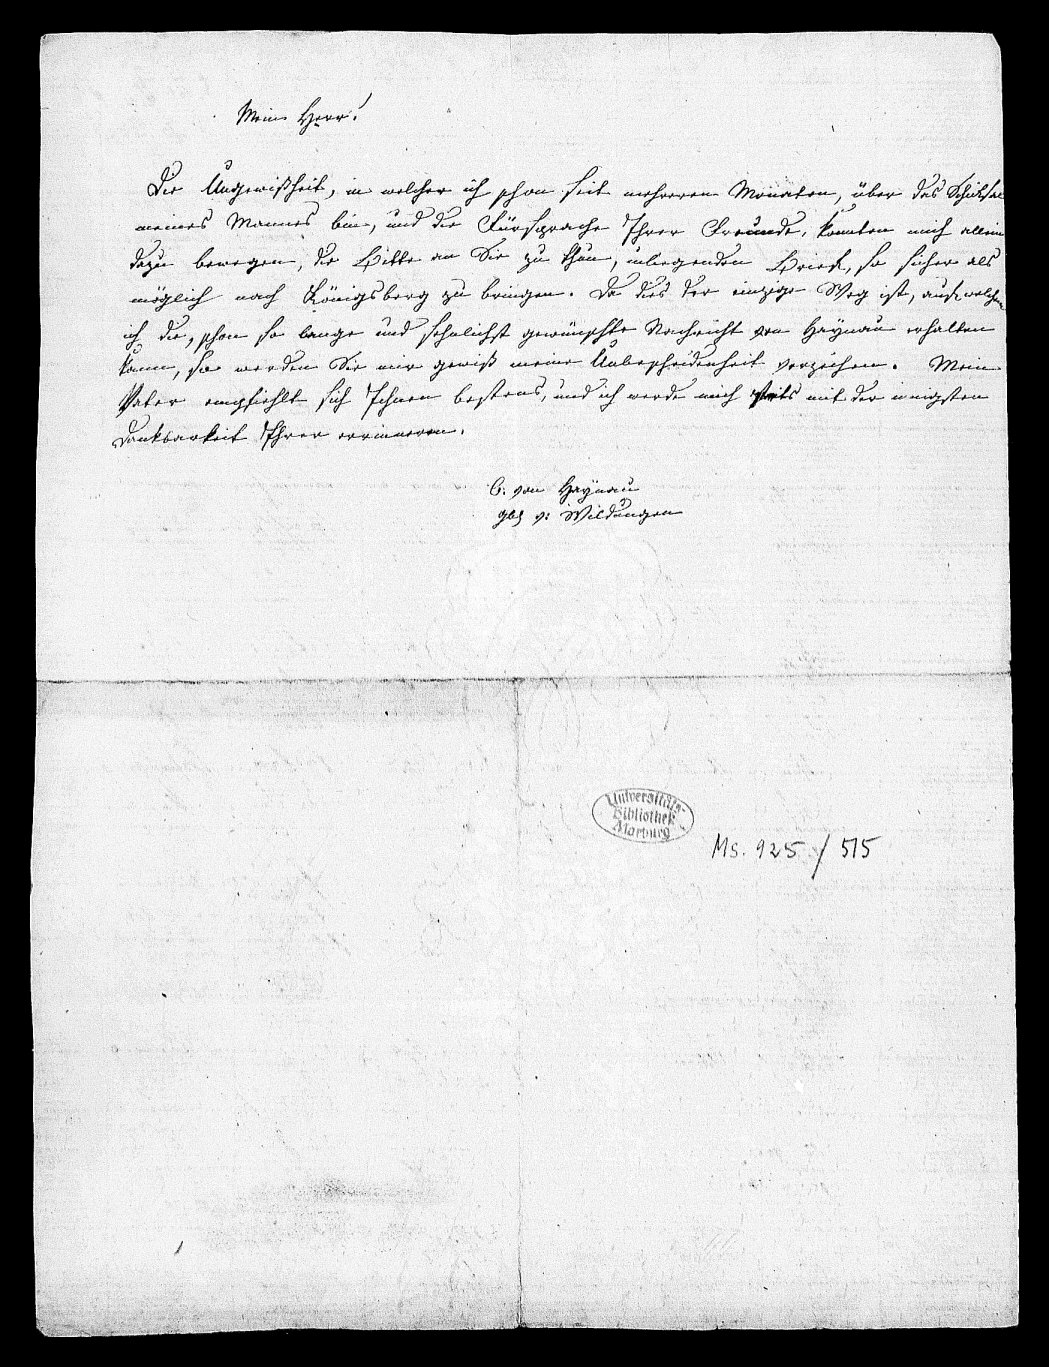 Mein Herr!
Die Ungewißheit, in welcher ich schon seit mehreren Monaten, über das Schicksal
meines Mannes bin, und die Fürsprache Ihrer Freunde, konnten mich allein
dazu bewegen, die Bitte an Sie zu thun, inliegenden Brief, so sicher als
möglich nach Königsberg zu bringen. Da dies der einzige Weg ist, auf welchem
ich die, schon so lange und sehnlichst gewünschte Nachricht von Haynau erhalten
kann, so werden Sie mir gewiß meine Unbescheidenheit verzeihen. Mein
Vater empfiehlt sich Ihnen bestens, und ich werde mich stets mit der innigsten
Dankbarkeit Ihrer errinneren.
C. von Haynau
geb v: Wildungen
Universitäts-
Bibliothek
Marburg
Ms. 925 / 515